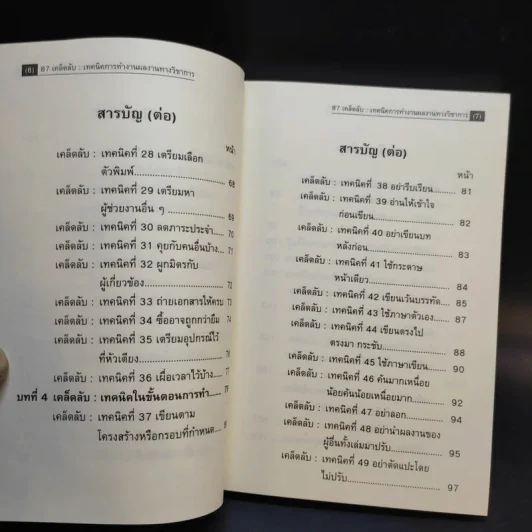 (6) 87 เคล็ดลับ : เทคนิคการทำงานผลงานทางวิชาการ
สารบัญ (ต่อ)
หน้า
เคล็ดลับ : เทคนิคที่ 28 เตรียมเลือก
ตัวพิมพ์..................... 68
เคล็ดลับ : เทคนิคที่ 29 เตรียมหา
ผู้ช่วยงานอื่น ๆ............... 69
เคล็ดลับ : เทคนิคที่ 30 ลดภาระประจำ.... 70
เคล็ดลับ : เทคนิคที่ 31 คุยกับคนอื่นบ้าง.. 71
เคล็ดลับ : เทคนิคที่ 32 ผูกมิตรกับ
ผู้เกี่ยวข้อง................. 72
เคล็ดลับ : เทคนิคที่ 33 ถ่ายเอกสารให้ครบ 73
เคล็ดลับ : เทคนิคที่ 34 ซื้ออาจถูกกว่ายืม 74
เคล็ดลับ : เทคนิคที่ 35 เตรียมอุปกรณ์ไว้
ที่หัวเตียง................... 76
เคล็ดลับ : เทคนิคที่ 36 เผื่อเวลาไว้บ้าง.... 77
บทที่ 4 เคล็ดลับ : เทคนิคในขั้นตอนการทำ......
เคล็ดลับ : เทคนิคที่ 37 เขียนตาม
โครงสร้างหรือกรอบที่กำหนด...
87 เคล็ดลับ : เทคนิคการทำงานผลงานทางวิชาการ (7)
สารบัญ (ต่อ)
หน้า
เคล็ดลับ : เทคนิคที่ 38 อย่ารีบเรียน....... 81
เคล็ดลับ : เทคนิคที่ 39 อ่านให้เข้าใจ
ก่อนเขียน.................... 82
เคล็ดลับ : เทคนิคที่ 40 อย่าเขียนบท
หลังก่อน..................... 83
เคล็ดลับ : เทคนิคที่ 41 ใช้กระดาษ
หน้าเดียว.................... 84
เคล็ดลับ : เทคนิคที่ 42 เขียนเว้นบรรทัด... 86
เคล็ดลับ : เทคนิคที่ 43 ใช้ภาษาตัวเอง.... 87
เคล็ดลับ : เทคนิคที่ 44 เขียนตรงไป
ตรงมา กระชับ............... 88
เคล็ดลับ : เทคนิคที่ 45 ใช้ภาษาเขียน..... 90
เคล็ดลับ : เทคนิคที่ 46 ค้นมากเหนื่อย
น้อยค้นน้อยเหนื่อยมาก...... 92
เคล็ดลับ : เทคนิคที่ 47 อย่าลอก.......... 94
เคล็ดลับ : เทคนิคที่ 48 อย่านำผลงานของ
ผู้อื่นทั้งเล่มมาปรับ.......... 95
เคล็ดลับ : เทคนิคที่ 49 อย่าตัดแปะโดย
ไม่ปรับ...................... 97